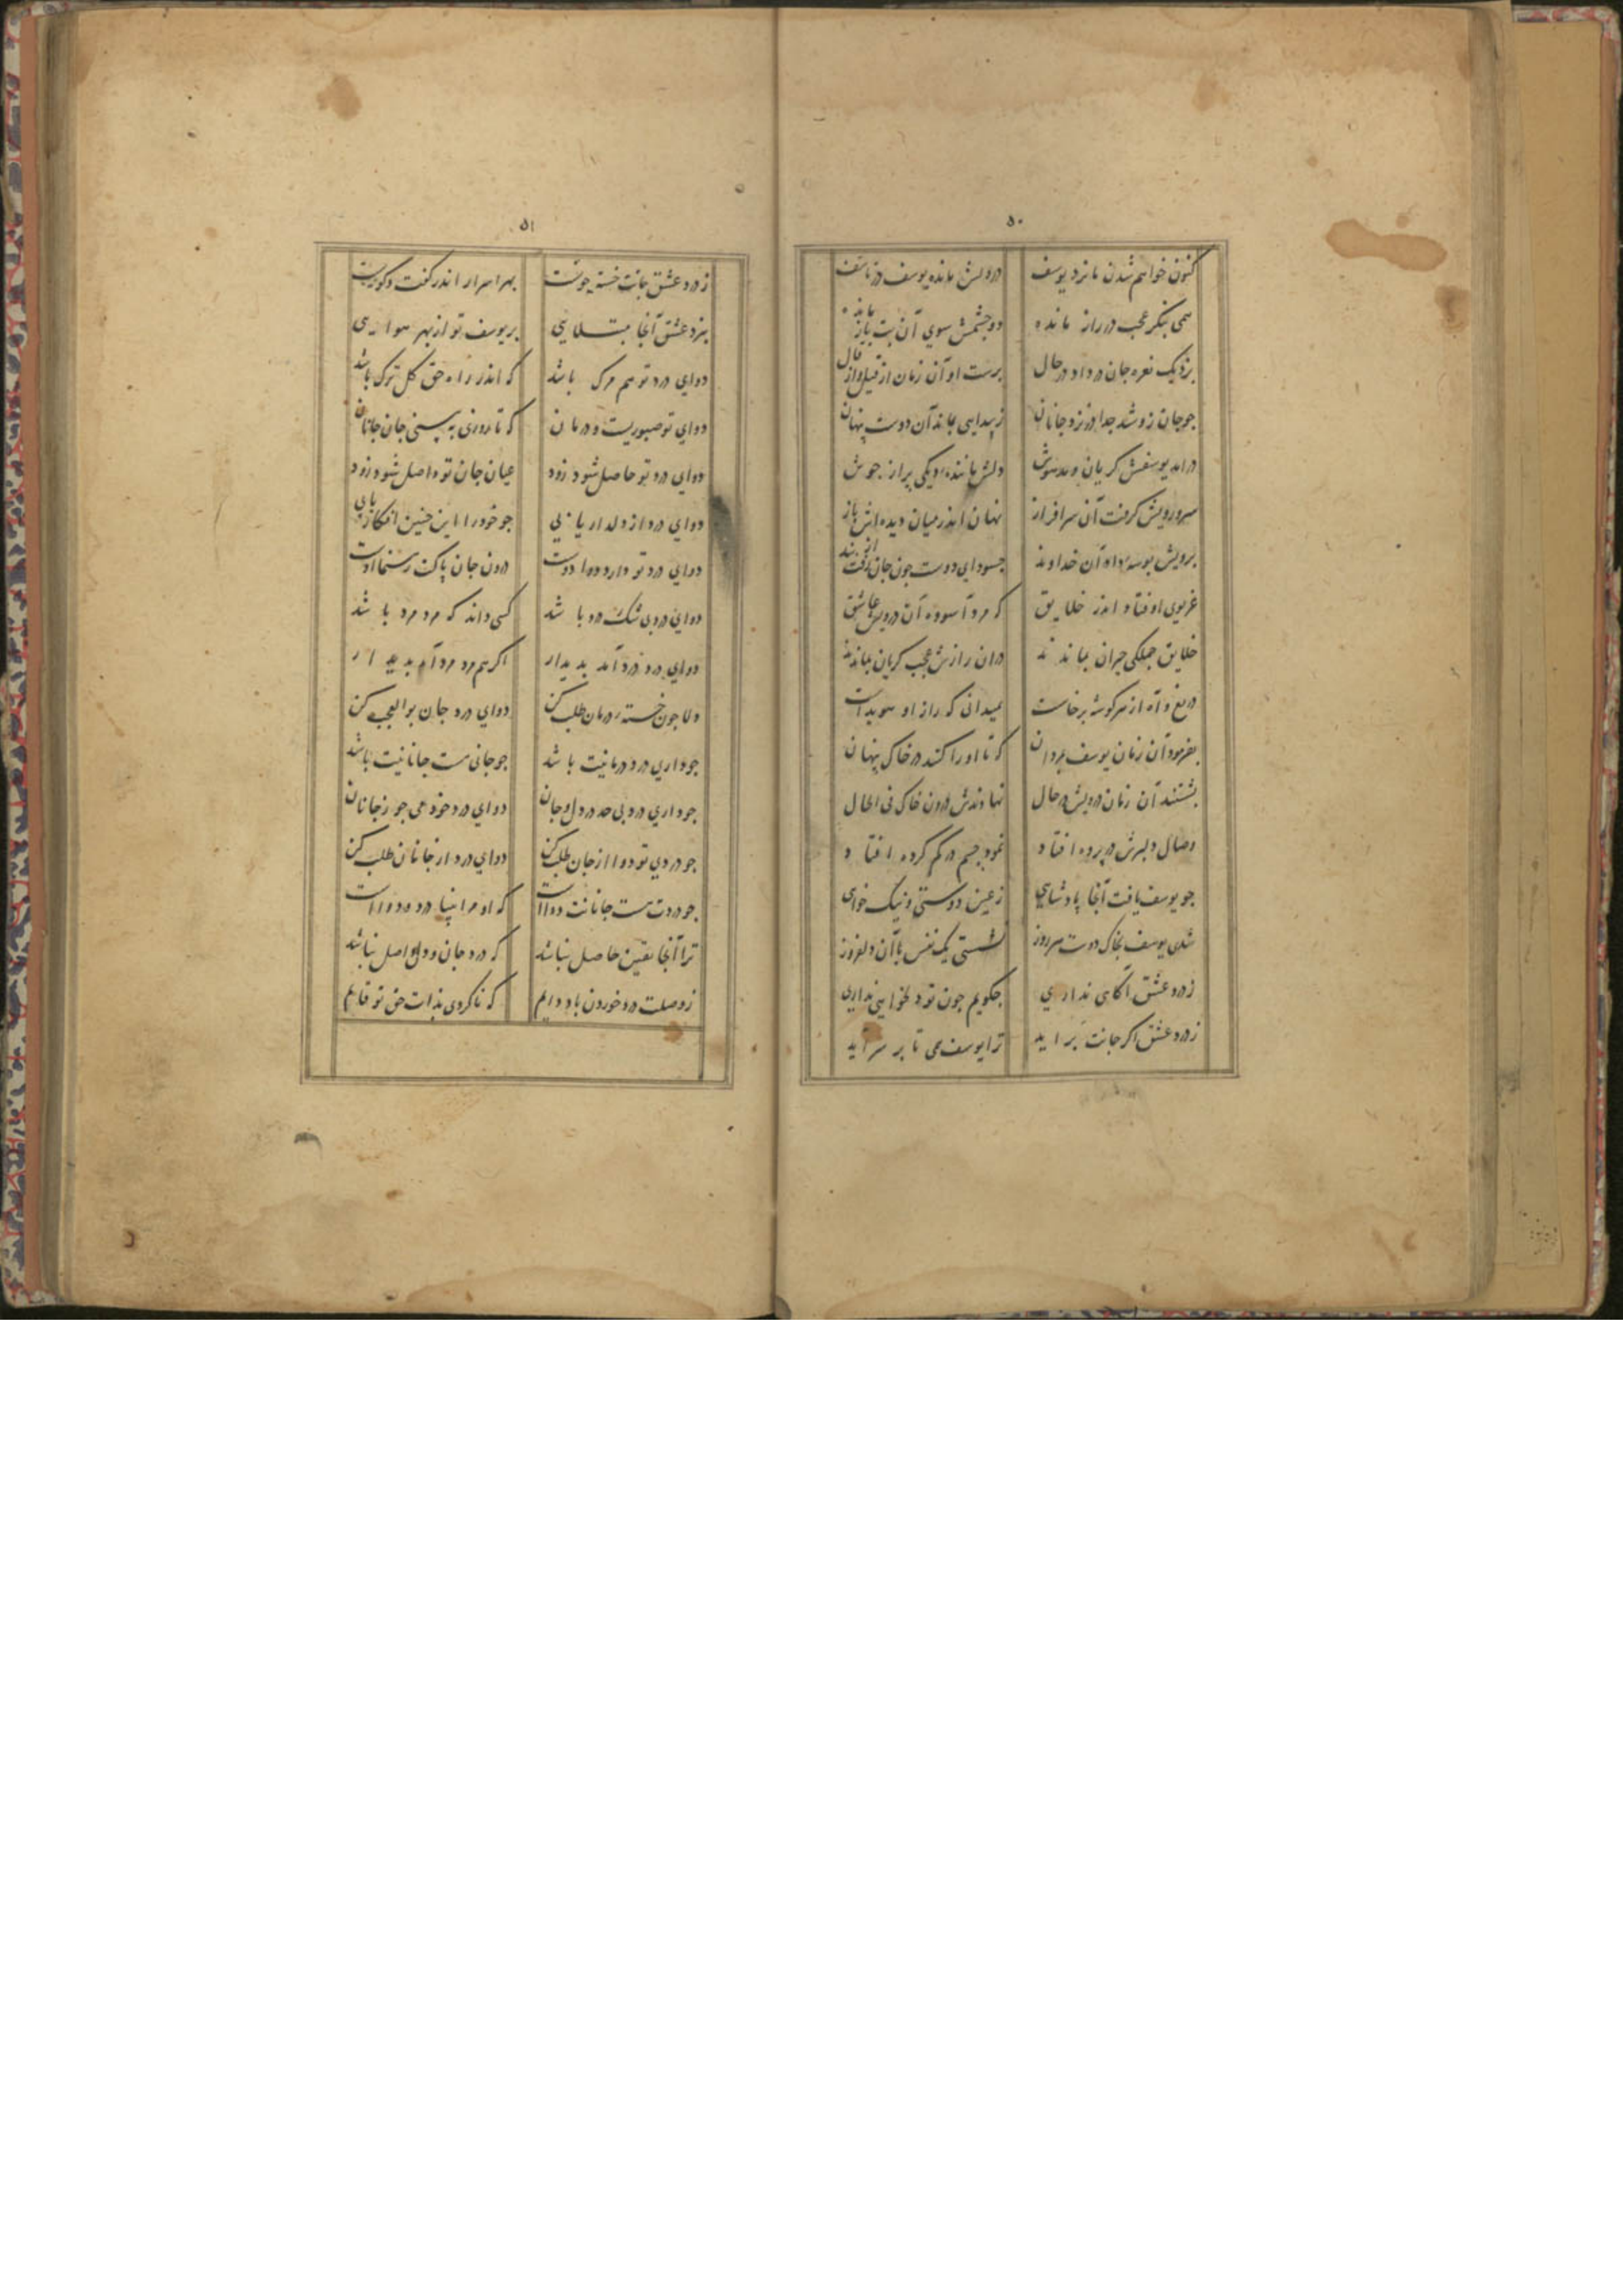 ۵۰
کنون خواهم شدن ما نزد یوسف درونش مانده یوسف در تأسف
همی بنکر عجب در راز مانده دو چشمش سوی آن بت باز مانده
بزد یک نعره جان در داد در حال برست او آن زمان از قیل و از قال
جو جان زو شد جدا در نزد جانان ز پیدایی بماند آن دوست پنهان
در آمد یوسفش کریان و مدهوش دلش مانند دیکی پر از جوش
سر درویش کرفت آن سرافراز نهان اندر میان دیده اش باز
برویش بوسه داد آن خداوند جسود ای دوست جون جان رفت
غریوی اوفتاد اندر خلایق که مرد آسوده آن درویش عاشق
خلایق جملکی حیران بماندند در ان رازش عجب کریان بماندند
دریغ و آه از هر کوشه برخاست نمیدانی که راز او هویداست
بفرمود آن زمان یوسف بمردان که تا او را کنند در خاک پنهان
بشستند آن زمان درویش در حال نهادندش درون خاک فی الحال
وصال دلبرش در پرده افتاد نمود جسم در کم کرده افتاد
جو یوسف یافت آنجا پادشاهی ز عین دوستی و نیک خواهی
شدی یوسف بخاک دوست هر روز نشستی یک نفس با آن دلفروز
ز درد عشق آکاهی نداری جکویم جون تو دلخواهی نداری
ز درد عشق اکر جانت بر آید ترا یوسف همی تا بر سر آید
۵۱
ز درد عشق جانت خسته جونست بهر اسرار اندر کفت و کونست
بنزد عشق آنجا مبتلایی بر یوسف تو از بهر هوایی
دوای درد تو هم مرک باشد که اندر راه حق کل ترک باشد
دوای تو صبوریست و درمان که تا روزی به بینی جان جانان
دوای درد تو حاصل شود زود عیان جان تو واصل شود زود
دوای درد از دلدار یابی جو خود را این جنین افکار یابی
دوای درد تو دارو ده اوست درون جان پاکت رهنما اوست
دوای درد بی شک درد باشد کسی داند که مرد مرد باشد
دوای درد درد آمد پدیدار اکر هم درد مرد آمد پدیدار
دلا جون خسته درمان طلب کن دوای درد جان بوالعجب کن
جو داری درد درمانیت باشد جو جانی هست جانانیت باشد
جو داری درد بی حد در دل و جان دوای درد خود می جو ز جانان
جو دردی تو دوا از جان طلب کن دوای درد از جانان طلب کن
جو دردت هست جانانت دواست که او مر انبیا درد و دواست
ترا آنجا یقین حاصل نباشد که درد جان و دل واصل نباشد
ز وصلت درد خوردن باد دایم که تا کردی بذات حق تو قایم